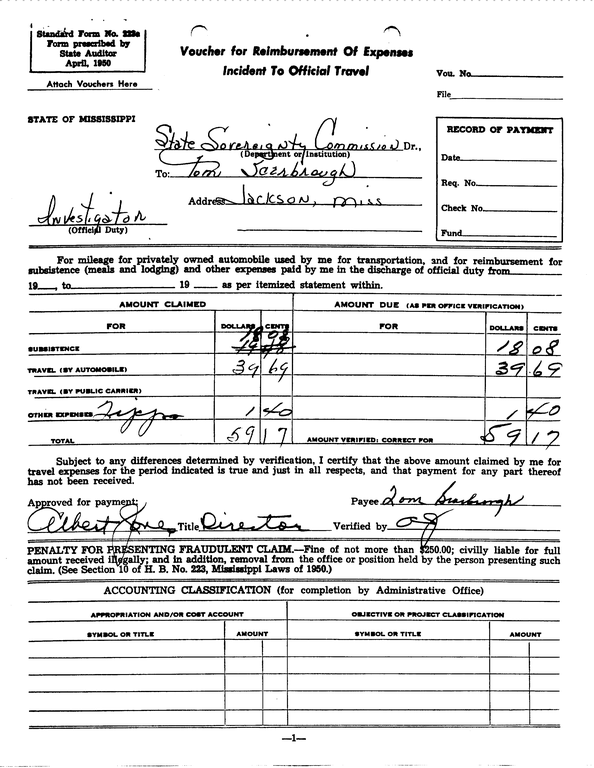 Standard Form No. 223a
Form prescribed by
State Auditor
April, 1950
Attach Vouchers Here
Voucher for Reimbursement Of Expenses
Incident To Official Travel
Vou. No.
File
STATE OF MISSISSIPPI
State Sovereignty Commission Dr.,
(Department or Institution)
To: Tom Scarbrough
Address Jackson, Miss
Investigator
(Official Duty)
RECORD OF PAYMENT
Date
Req. No.
Check No.
Fund
For mileage for privately owned automobile used by me for transportation, and for reimbursement for
subsistence (meals and lodging) and other expenses paid by me in the discharge of official duty from
19 , to 19 as per itemized statement within.
AMOUNT CLAIMED AMOUNT DUE (AS PER OFFICE VERIFICATION)
FOR DOLLARS CENTS FOR DOLLARS CENTS
SUBSISTENCE 18 08 18 08
TRAVEL (BY AUTOMOBILE) 39 69 39 69
TRAVEL (BY PUBLIC CARRIER)
OTHER EXPENSES 1 40 1 40
TOTAL 59 17 AMOUNT VERIFIED: CORRECT FOR 59 17
Subject to any differences determined by verification, I certify that the above amount claimed by me for
travel expenses for the period indicated is true and just in all respects, and that payment for any part thereof
has not been received.
Approved for payment: Payee Tom Scarbrough
Albert Jones Title Director Verified by aj
PENALTY FOR PRESENTING FRAUDULENT CLAIM.—Fine of not more than $250.00; civilly liable for full
amount received illegally; and in addition, removal from the office or position held by the person presenting such
claim. (See Section 10 of H. B. No. 223, Mississippi Laws of 1950.)
ACCOUNTING CLASSIFICATION (for completion by Administrative Office)
APPROPRIATION AND/OR COST ACCOUNT OBJECTIVE OR PROJECT CLASSIFICATION
SYMBOL OR TITLE AMOUNT SYMBOL OR TITLE AMOUNT
—1—